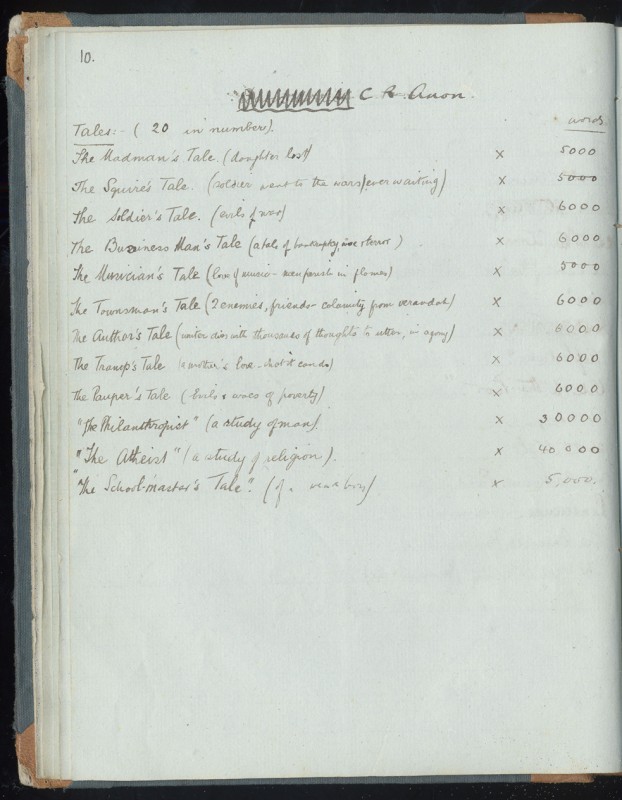 10.
C R. Anon.
words.
Tales:- ( 20 in number).
The Madman's Tale. (daughter lost) x 5000
The Squire's Tale. (soldier went to the wars, ever waiting) x 5000
The Soldier's Tale. (evils of war) x 6000
The Business Man's Tale (a tale of bankruptcy, terror) x 6000
The Musician's Tale (love of music - men perish in flames) x 5000
The Townsman's Tale (2 enemies, friends - calamity from verandah) x 6000
The Author's Tale (writer dies with thousands of thoughts to utter, in agony) x 6000
The Tramp's Tale (a mother's love - what it can do) x 6000
The Pauper's Tale (Evils & woes of poverty) x 6000
"The Philanthropist" (a study of man) x 30000
"The Atheist" (a study of religion). x 40000
"The School-master's Tale". (of a boy) x 5,000.